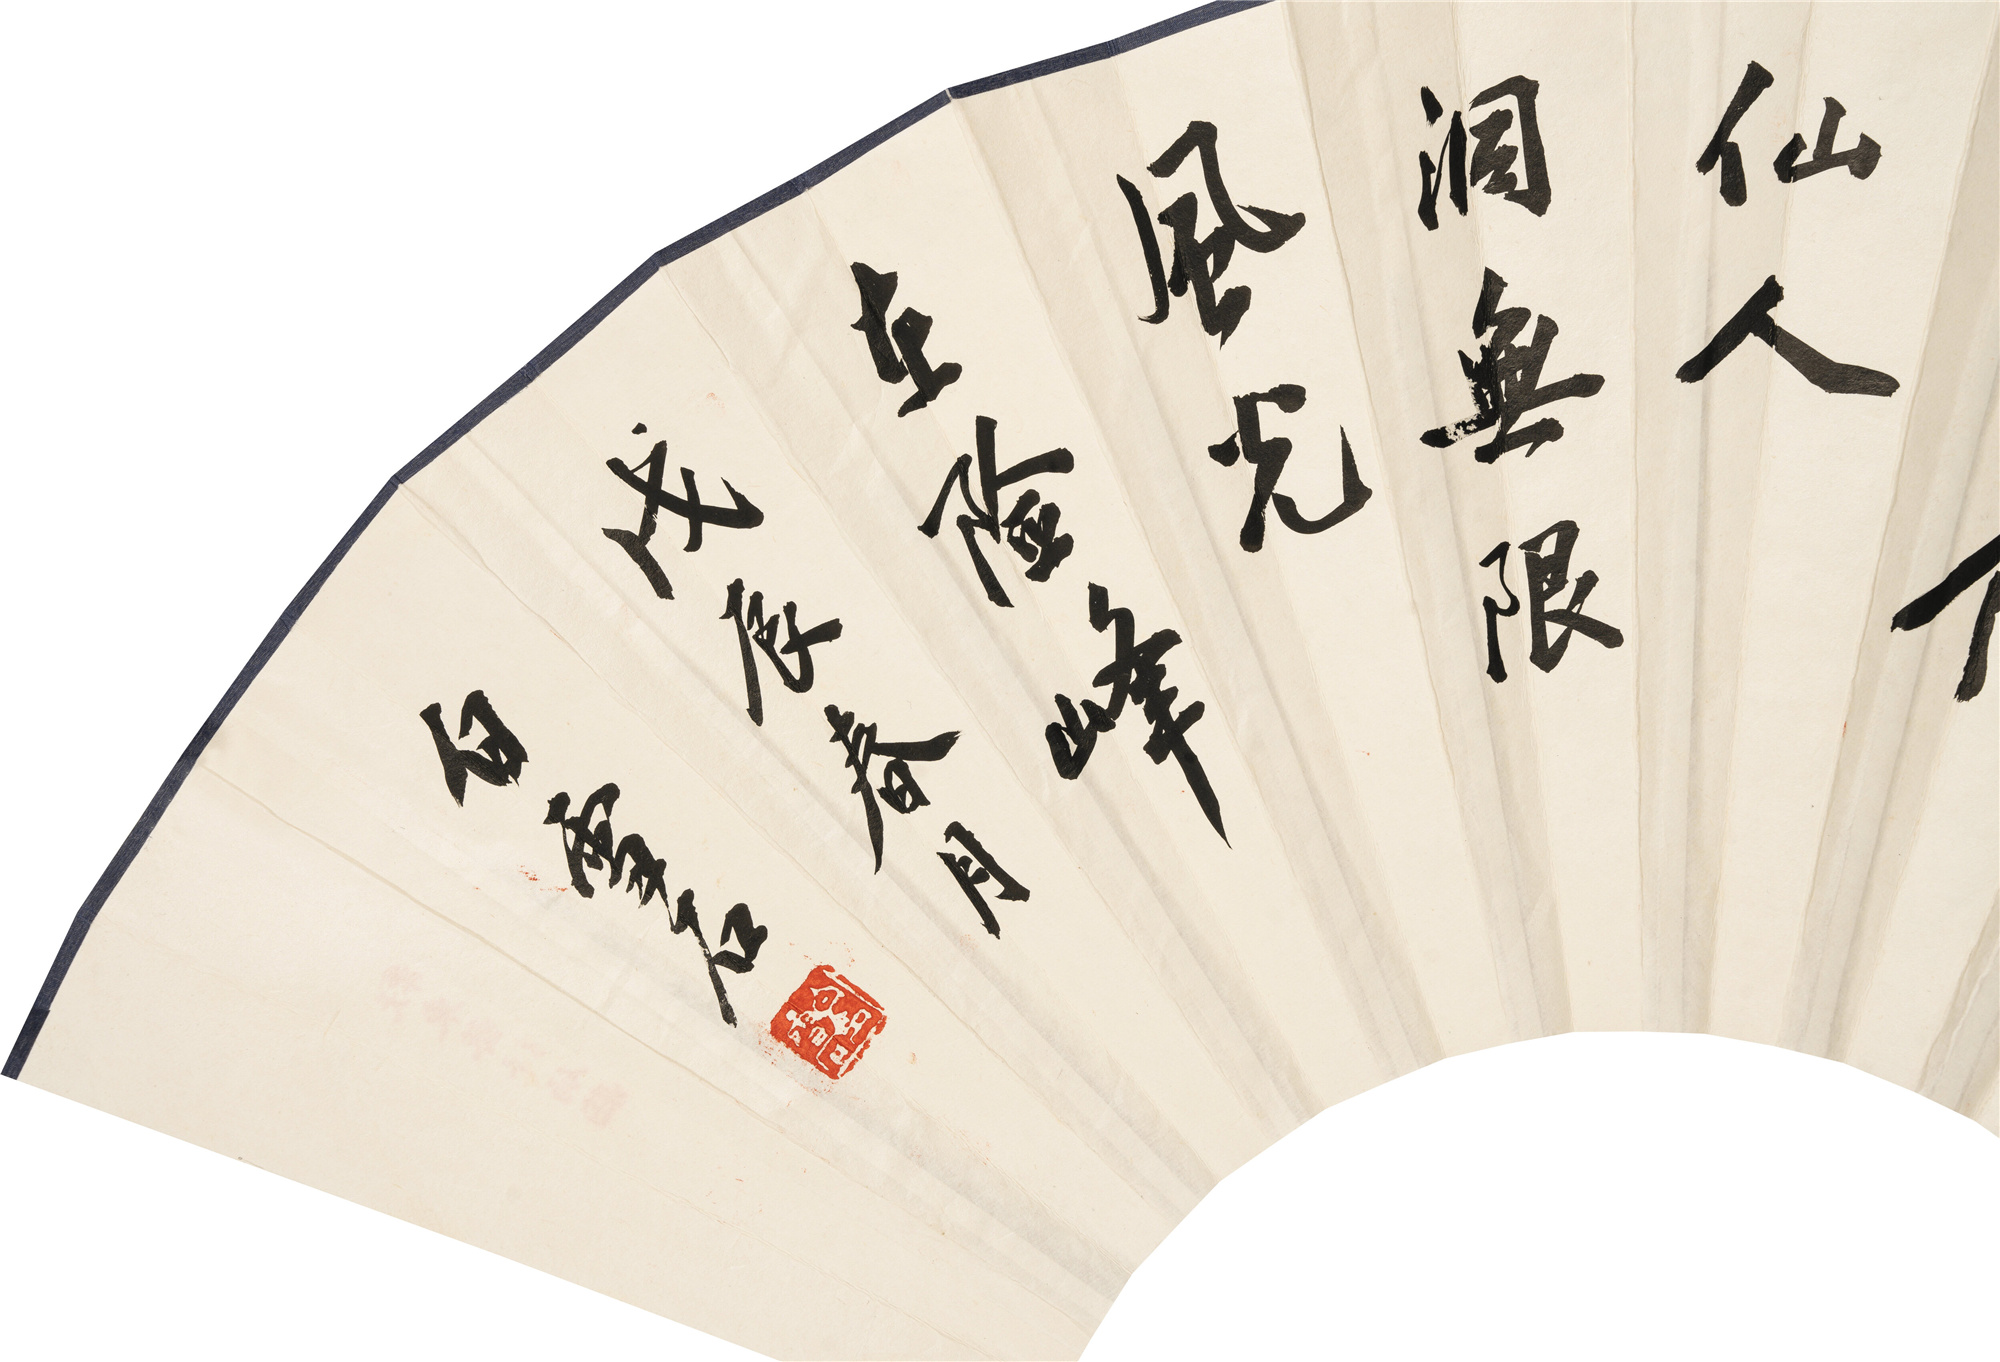 仙人
洞無限
風光
在險峰
戊辰春月
白雪石